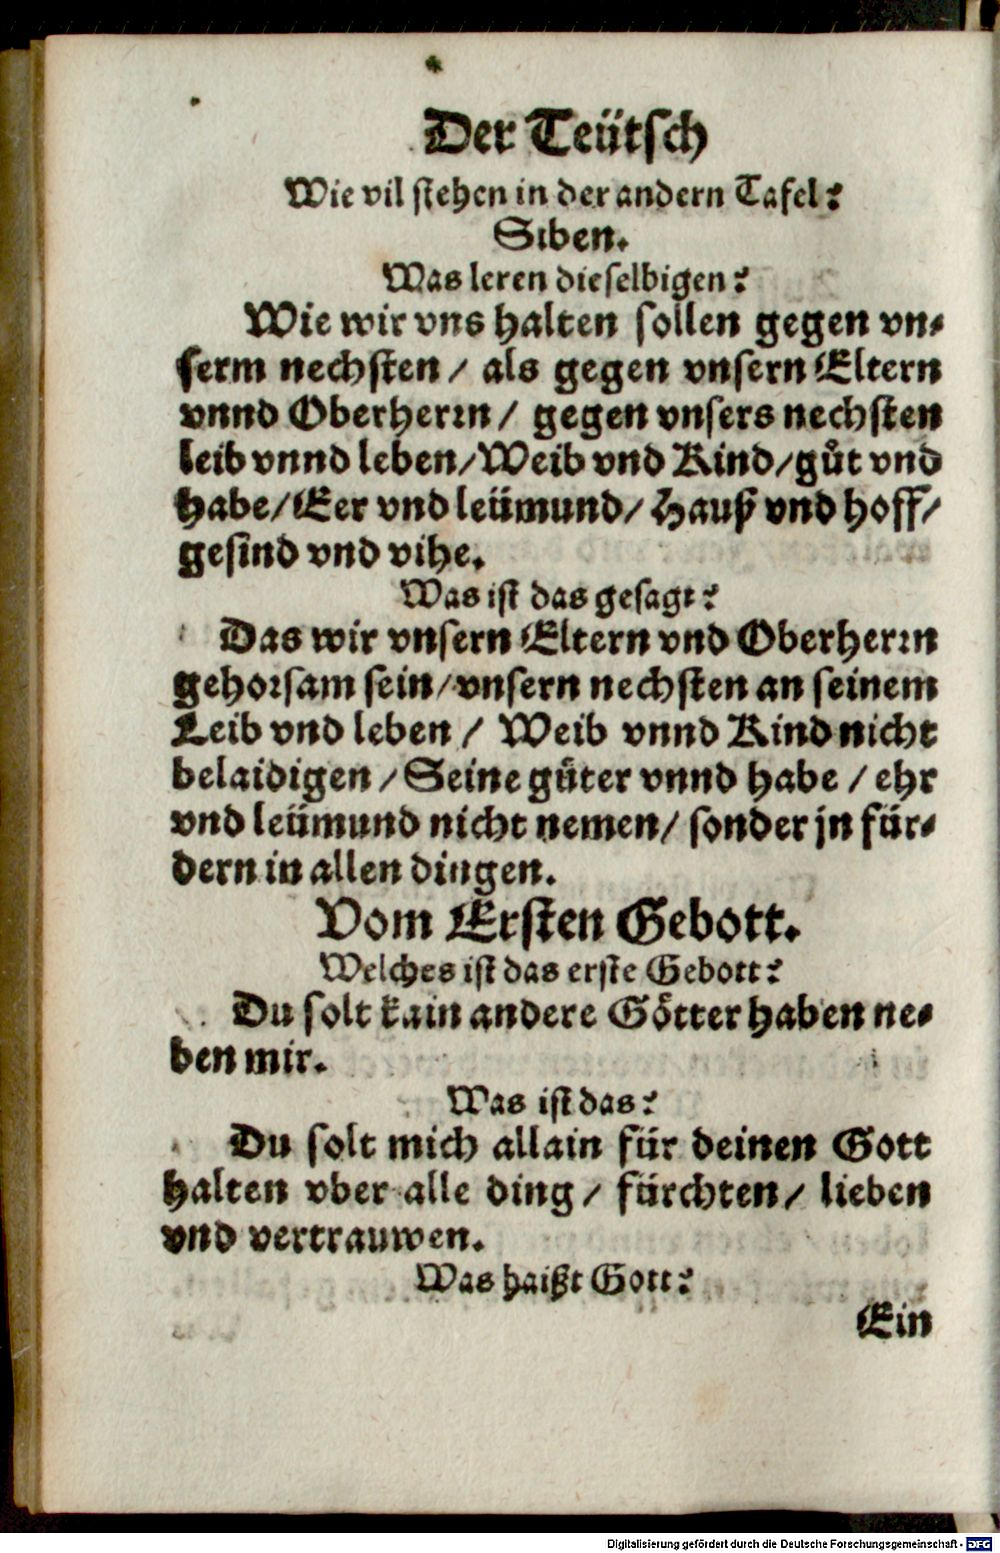 Der Teütsch
Wie vil stehen in der andern Tafel?
Siben.
Was leren dieselbigen?
Wie wir vns halten sollen gegen vn-
serm nechsten / als gegen vnsern Eltern
vnnd Oberherrn / gegen vnsers nechsten
leib vnnd leben / Weib vnd Kind / gůt vnd
habe / Eer vnd leümund / Hauß vnd hoff /
gesind vnd vihe.
Was ist das gesagt?
Das wir vnsern Eltern vnd Oberherrn
gehorsam sein / vnsern nechsten an seinem
Leib vnd leben / Weib vnnd Kind nicht
belaidigen / Seine gůter vnnd habe / ehr
vnd leümund nicht nemen / sonder jn für-
dern in allen dingen.
Vom Ersten Gebott.
Welches ist das erste Gebott?
Du solt kain andere Götter haben ne-
ben mir.
Was ist das?
Du solt mich allain für deinen Gott
halten vber alle ding / fürchten / lieben
vnd vertrauwen.
Was haißt Gott?
Ein
Digitalisierung gefördert durch die Deutsche Forschungsgemeinschaft - DFG